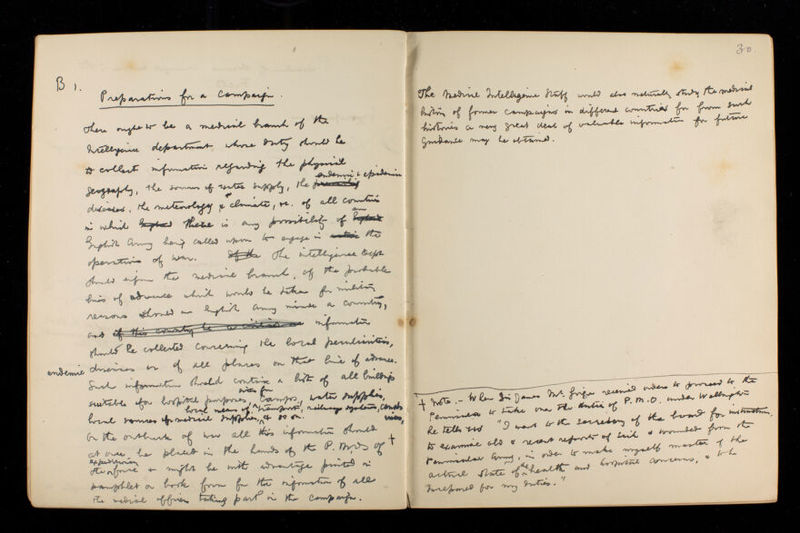 B 1.
Preparations for a Campaign.
There ought to be a medical branch of the
Intelligence department, whose duty should be
to collect information regarding the physical
geography, the sources of water supply, the endemic & epidemic
diseases, the meteorology & climate, &c. of all countries
in which there is any possibility of an
English Army being called upon to engage in the
operations of war. The intelligence Dept
should inform the medical branch, of the probable
lines of advance which would be taken for military
reasons should an English army invade a country,
and if this country be information
should be collected concerning the local peculiarities,
endemic diseases &c of all places on that line of advance.
Such information should contain a list of all buildings
suitable for hospital purposes, sites for camps, water supplies,
local sources of medical supplies, local means of transport, railway systems, & so on.
On the outbreak of war all this information should
at once, be placed in the hands of the P. M. O. of +
the expeditionary force & might be with advantage printed in
pamphlet or book form for the information of all
the medical officers taking part in the campaign.
30.
The Medical Intelligence Staff would also naturally study the medical
history of former campaigns in different countries for from such
histories a very great deal of valuable information for future
guidance may be obtained.
+ Note.- When Sir James McGrigor received orders to proceed to the
Peninsula to take over the duties of P.M.O. under Wellington
he tells us "I went to the secretary of the board for instruction,
to examine old & recent reports of sick & wounded from the
Peninsular Army, in order to make myself master of the
actual state of the health and hospital concerns, & to be
prepared for my duties."